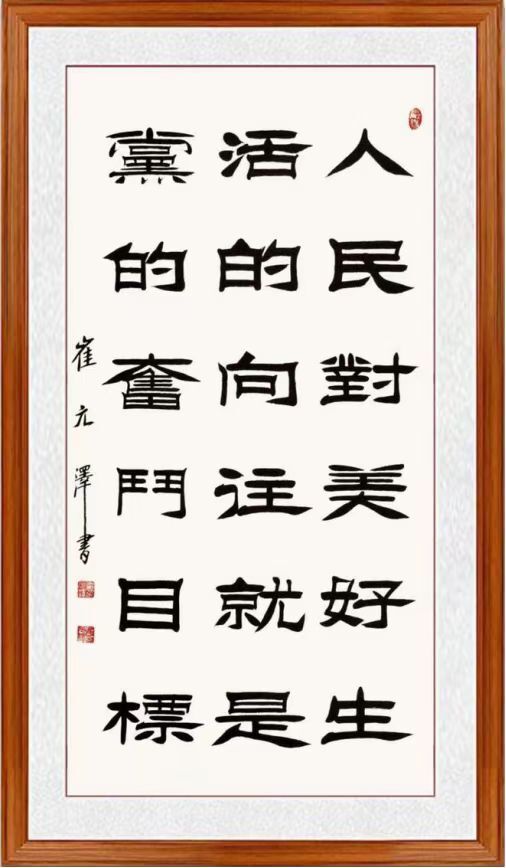 人民對美好生
活的向往就是
黨的奮鬥目標
崔元澤書